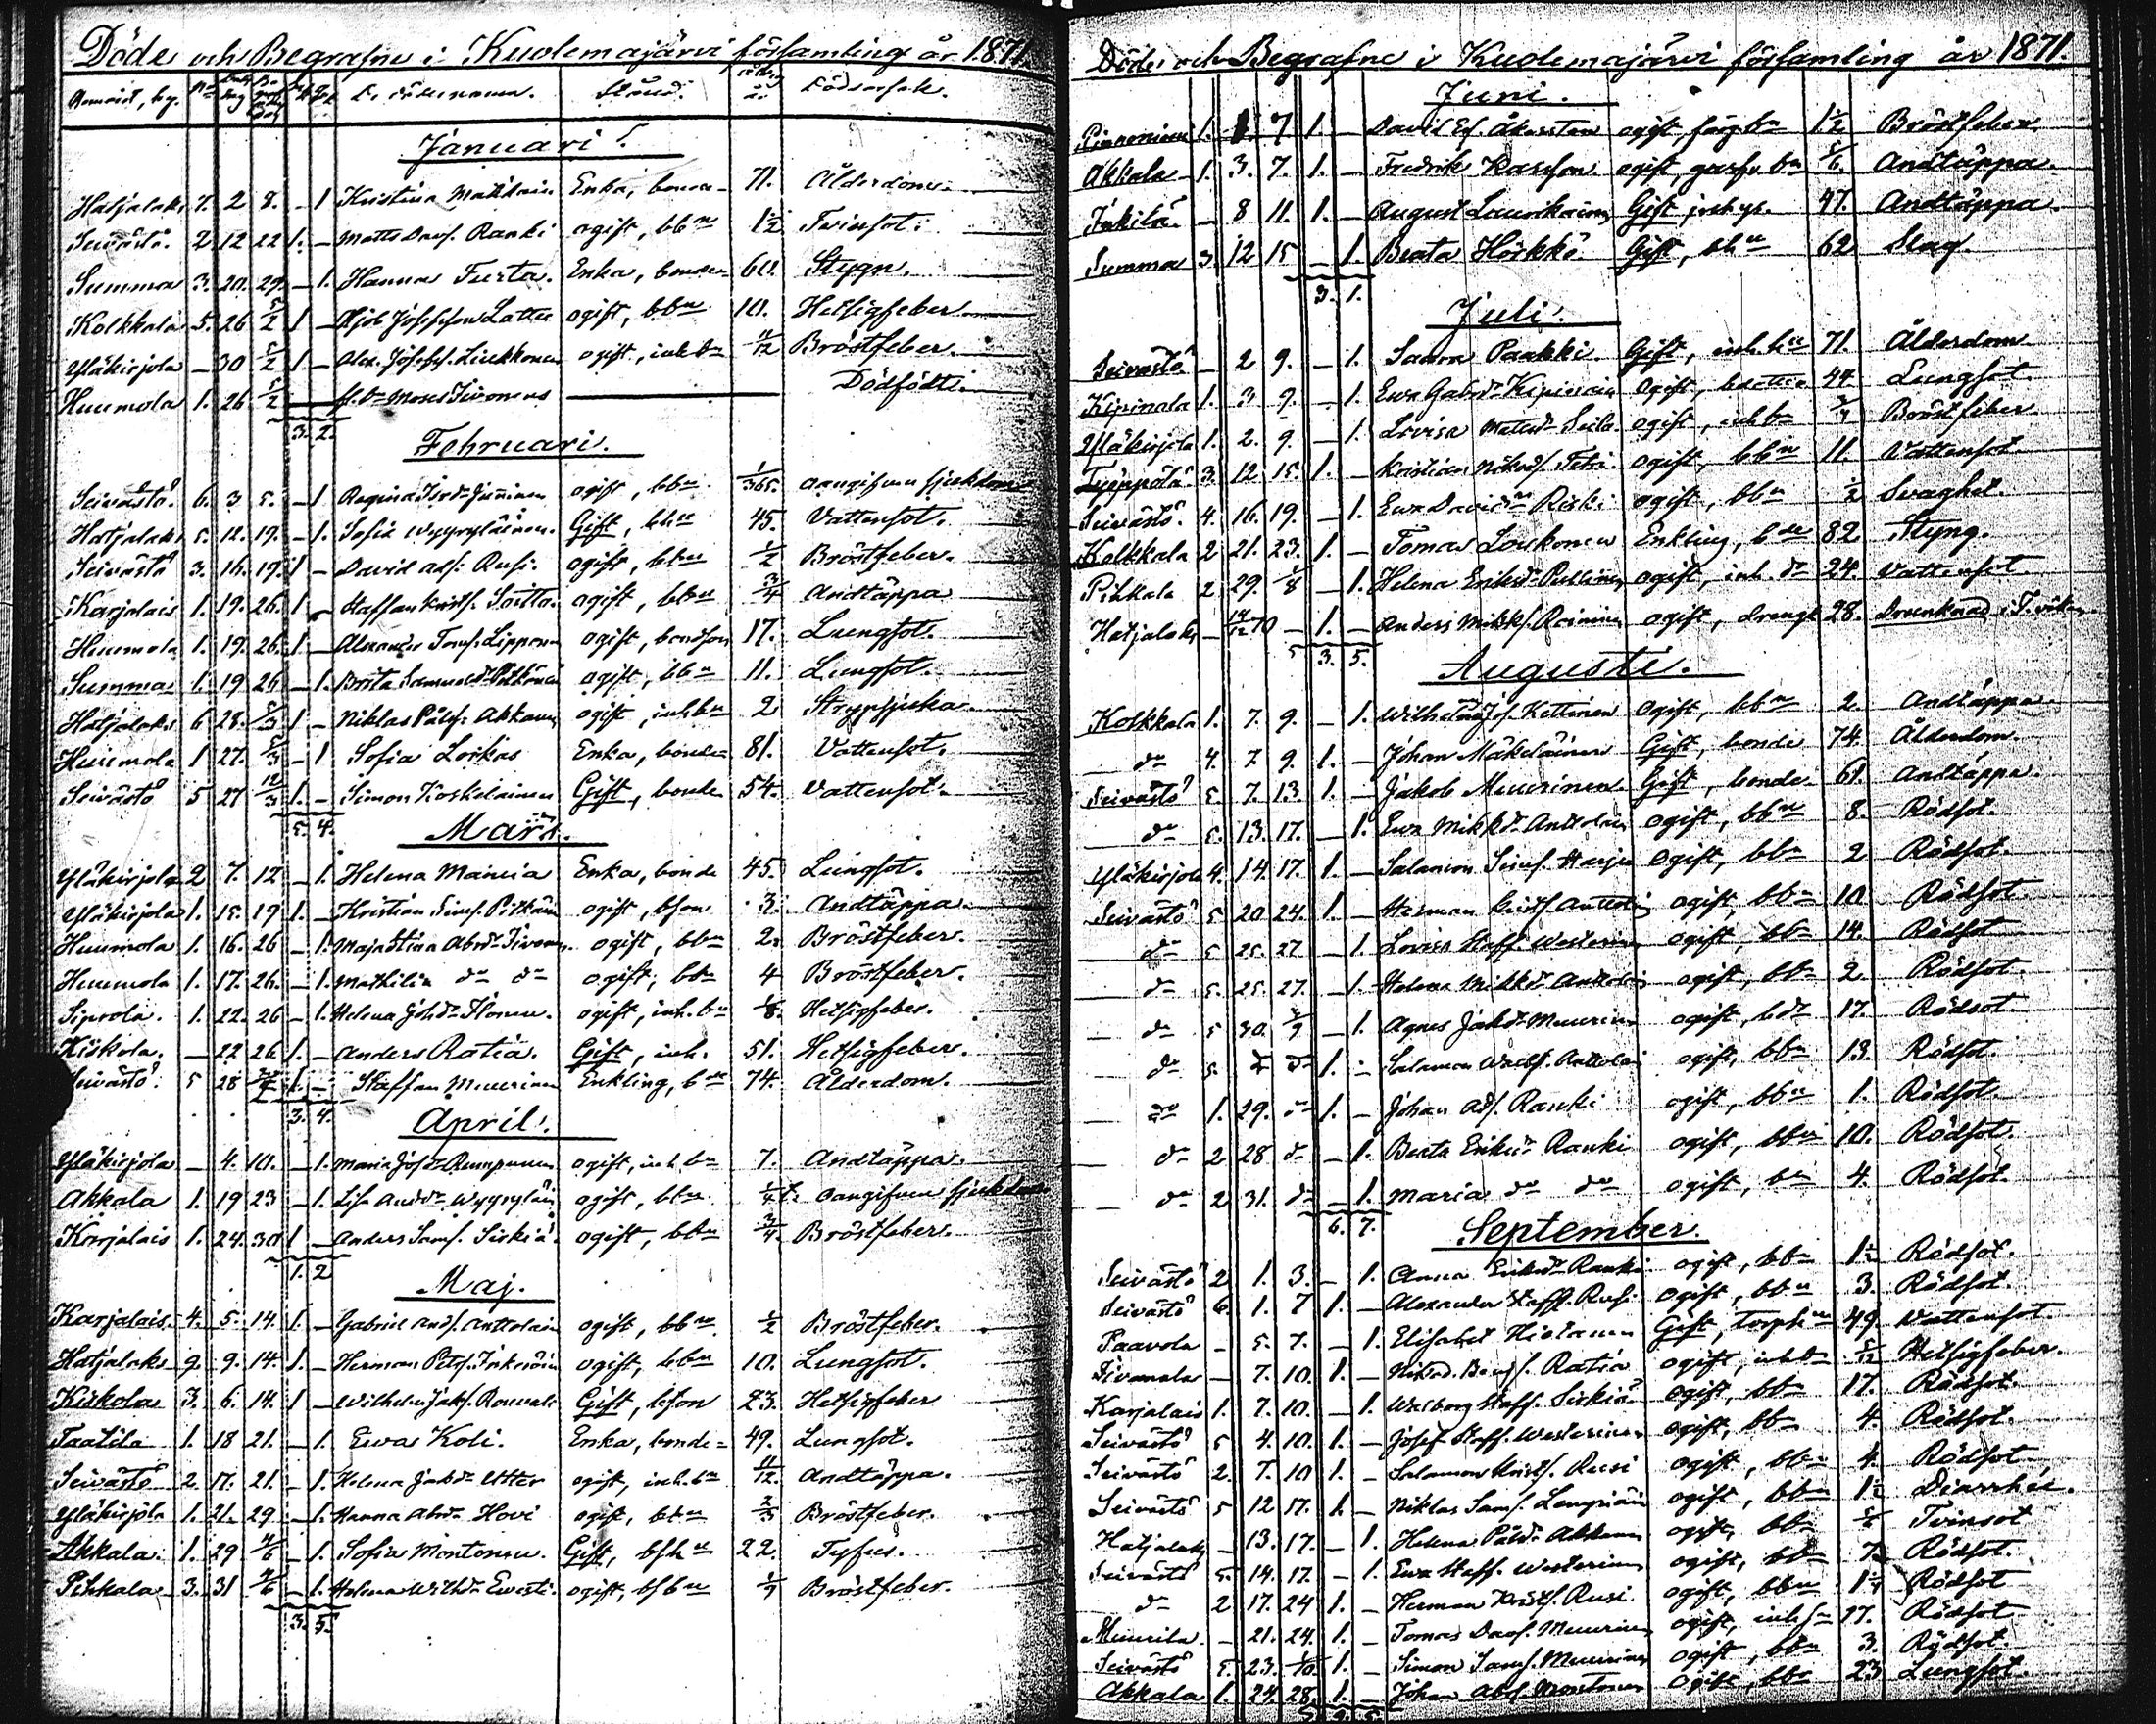 Döde och Begrafne i Kuolemajärvi församling år 1871.
Hemvist, by. No Dag M. Q. De dödes namn. Stånd. Ålder år. Dödsorsak.
Januari.
Hatjalaks 7. 2 8. – 1 Kristina Enka, bonde- 71. Ålderdom.
Seivästö 2 12 22 1. – Matts Davs. Ranki ogift, bbn 1½ Tvinsot.
Summa 3. 20. 29. – 1. Hanna Fursta. Enka, bonde- 60. Stygn.
Kolkkala 5. 26 5/2 1 – Josefsson Lattu ogift, bbn 10. Hetsigfeber.
Yläkirjola – 30 5/2 1 – Alex. Josefs. Liukkonen ogift, inhbn 11/12 Bröstfeber.
Huumola 1. 26 5/2 Moses Sivonens Dödfödt.
3. 2.
Februari.
Seivästö 6. 3 5. – 1 Regina ogift, bbn 1/365. oangifven sjukdom
Hatjalaks 5. 12. 19. – 1. Sofia Wyyryläinen. Gift, bhu 45. Vattensot.
Seivästö 3. 16. 19. 1 – David Ads. Rusi. ogift, bbn ½ Bröstfeber.
Karjalais 1. 19. 26. 1 – Staffan Krists. ogift, bbn ¾ Andtäppa
Huumola 1. 19. 26. 1. – Alexander Toms. Lipponen ogift, bondson 17. Lungsot.
Summa 1. 19 26 – 1. Brita Samuelsdr Pitkänen ogift, bbn 11. Lungsot.
Hatjalaks 6 28. 5/3 1 – Niklas Påls. Akkanen ogift, inhbn 2 Strypsjuka.
Huumola 1 27. 5/3 – 1 Sofia Lorkas Enka, bonde- 81. Vattensot.
Seivästö 5 27 12/3 1. – Simon Koskelainen Gift, bonde 54. Vattensot.
5. 4.
Mars.
Yläkirjola 2 7. 12 – 1. Helena Mancia Enka, bonde 45. Lungsot.
Yläkirjola 1. 15. 19 1. – Kristian Sims. Pitkänen ogift, bson 3. Andtäppa
Huumola 1. 16. 26 – 1. Maja Stina Abrdr Sivonen ogift, bbn 2. Bröstfeber.
Huumola 1. 17. 26. – 1. Mathilda do do ogift, bbn 4 Bröstfeber.
Siprola. 1. 22. 26 – 1. Helena Johdr Ilonen. ogift, inh.bn 1/8. Hetsigfeber.
Kiskola. – 22 26 1. – Anders Ratia. Gift, inh. 51. Hetsigfeber.
Seivästö. 5 28 1. – Staffan Muurinen Enkling, bde 74. Ålderdom.
3. 4.
April.
Yläkirjola – 4. 10. – 1. Maria Josdr ogift, inh.bn 7. Andtäppa.
Akkala 1. 19 23 – 1. Lisa Anddr Wyyryläin ogift, bbn oangifven sjukdom
Karjalais 1. 24. 30 1 – Anders Sams. Sirkiä. ogift, bbn ¾ Bröstfeber.
1. 2
Maj.
Karjalais 4. 5. 14. 1. – Gabriel Ands. Anttolain ogift, bbn ½ Bröstfeber.
Hatjalaks 9. 9. 14. 1. – Herman Pets. Inkeröin ogift, bbn 10. Lungsot.
Kiskola 3. 6. 14. 1 – Wilhelm Jaks. Gift, bson 23. Hetsigfeber
Taatila 1. 18 21. – 1. Ewa Koli. Enka, bonde- 49. Lungsot.
Seivästö 2 17. 21. – 1. Helena Jakdr Utter ogift, inh.bn 11/12. Andtäppa.
Yläkirjola 1. 21. 29 – 1. Hanna Abrdr Hovi ogift, bbn 2/3 Bröstfeber.
Akkala. 1. 29 4/6 – 1. Sofia Montonen. Gift, bshu 22. Tyfus.
Pihkala 3. 31 4/6 – 1. Helena Wilhdr ogift, bsbn Bröstfeber.
3. 5.
Döde och Begrafne i Kuolemajärvi församling år 1871.
Juni.
1. 7 1. – David ogift, 1½ Bröstfeber.
Akkala 1. 3. 7. 1. – Fredrik Karsson ogift, 5/6. Andtäppa.
Inkilä – 8 11. 1. – August Lauvikainen Gift 47. Andtäppa.
Summa 3. 12 15 – 1. Beata Hörkkö. Gift, bhu 62 Slag.
3. 1.
Juli.
Seivästö – 2 9. – 1. Saara Paakki. Gift, inh.hu 71. Ålderdom
Kipinala 1. 3 9. – 1. Ewa Gabrdr Kipinoin ogift, bdotter 44 Lungsot.
Yläkirjola 1. 2. 9. – 1. Lovisa Matsdr Seila. ogift, inhbn ¾ Bröstfeber.
Työppölä 3. 12 15. 1. – Kristian ogift, bbn 11. Vattensot.
Seivästö 4. 16. 19. – 1. Ewa Davidsdr Riski ogift, bbn ½ Svaghet.
Kolkkala 2 21. 23. 1. – Tomas Loukonen Enkling, bde 82 Styng.
Pihkala 2 29. 1/8 – 1. Helena Eriksdr Pullinen ogift, inh. dr 24. Vattensot
Hatjalaks – 14/12 70 – 1. – Anders Mikks. Roininen ogift, dreng 28. Drunknad i
3. 5.
Augusti.
Kolkkala 1. 7. 9. – 1. Wilhelmina Jos. Kettinen ogift, bbn 2. Andtäppa.
do 4. 7. 9. 1. – Johan Mäkeläinen Gift, bonde 74. Ålderdom.
Seivästö 5. 7. 13. 1. – Jakob Muurinen. Gift, bonde 61. Andtäppa.
do 5. 13. 17. – 1. Ewa Mikkdr Anttolain ogift, bbn 8. Rödsot.
Yläkirjola 4. 14. 17. 1. – Salamon Sims. Harju ogift, bbn 2 Rödsot.
Seivästö 5. 20 24. 1. – Herman Krists. Anttoli ogift, bbn 10 Rödsot.
do 5 25. 27 – 1. Lovisa Staff. Westerinen ogift, bbn 14. Rödsot
do 5. 25. 27. – 1. Helena Mikkdr Anttolain ogift, bbn 2. Rödsot.
do 5 30. 3/9 – 1. Agnes Jakdr Muurinen ogift, bdr 17. Rödsot.
do 5. do do 1. – Salamon Anttolai ogift, bbn 13. Rödsot.
do 1. 29. do 1. – Johan Ads. Ranki ogift, bbn 1. Rödsot.
do 2 28 do – 1. Beata Eriksdr Ranki ogift, bbn 10. Rödsot.
do 2 31. do – 1. Maria do do ogift, bn 4. Rödsot.
6. 7.
September.
Seivästö 2 1. 3. – 1. Anna Eriksdr Ranki ogift, bbn 1½ Rödsot.
Seivästö 6. 1. 7 1. – Alexander Staffs. Rusi ogift, bbn 3. Rödsot.
Paavola – 5. 7. – 1. Elisabet Hietanen Gift, torphu 49. Vattensot.
Sivanala – 7. 10. 1. – Ratia ogift, inhbn 5/12 Hetsigfeber.
Karjalais 1. 7. 10. – 1. Walborg Staff. Sirkiä ogift, bbn 17. Rödsot.
Seivästö 5 4. 10. 1. – Josef Staff. Westerinen ogift, bbn 4. Rödsot.
Seivästö 2. 7. 10 1. – Salamon Krists. Rusi ogift, bbn 4. Rödsot.
Seivästö 5 12 17. 1. – Niklas Sams. ogift, bbn 1½ Diarrhée.
Hatjalaks – 13. 17. – 1. Helena Pålsdr Akkanen ogift, bbn Tvinsot
Seivästö 5. 14. 17. – 1. Ewa Staff. Westerinen ogift, bbn 7. Rödsot.
do 2 17. 24 1. – Herman Krists. Rusi. ogift, bbn Rödsot
Muurila – 21. 24. 1. – Tomas Davs. Muurinen ogift, inhsn 17. Rödsot
Seivästö 5. 23. 1/10 1. – Simon Sams. Muurinen ogift, bbn 3. Rödsot.
Akkala 1. 24. 28. 1. – Johan Abrs. Montonen ogift, bbn 23 Lungsot.